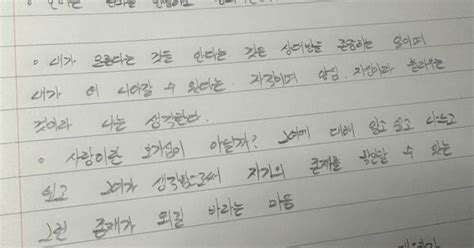 • 내가 모른다는 것을 안다는 것은 상대방을 존중하는 일이며
내가 더 나아갈 수 있다는 자각이며 양심, 지성이라 불리우는
것이라 나는 생각한다.
• 사랑이란 호기심이 아닐까? 그대에 대해 알고 싶고 나누고
싶고 그대가 생각함으로써 자기의 존재를 확인할 수 있는
그런 존재가 되길 바라는 마음